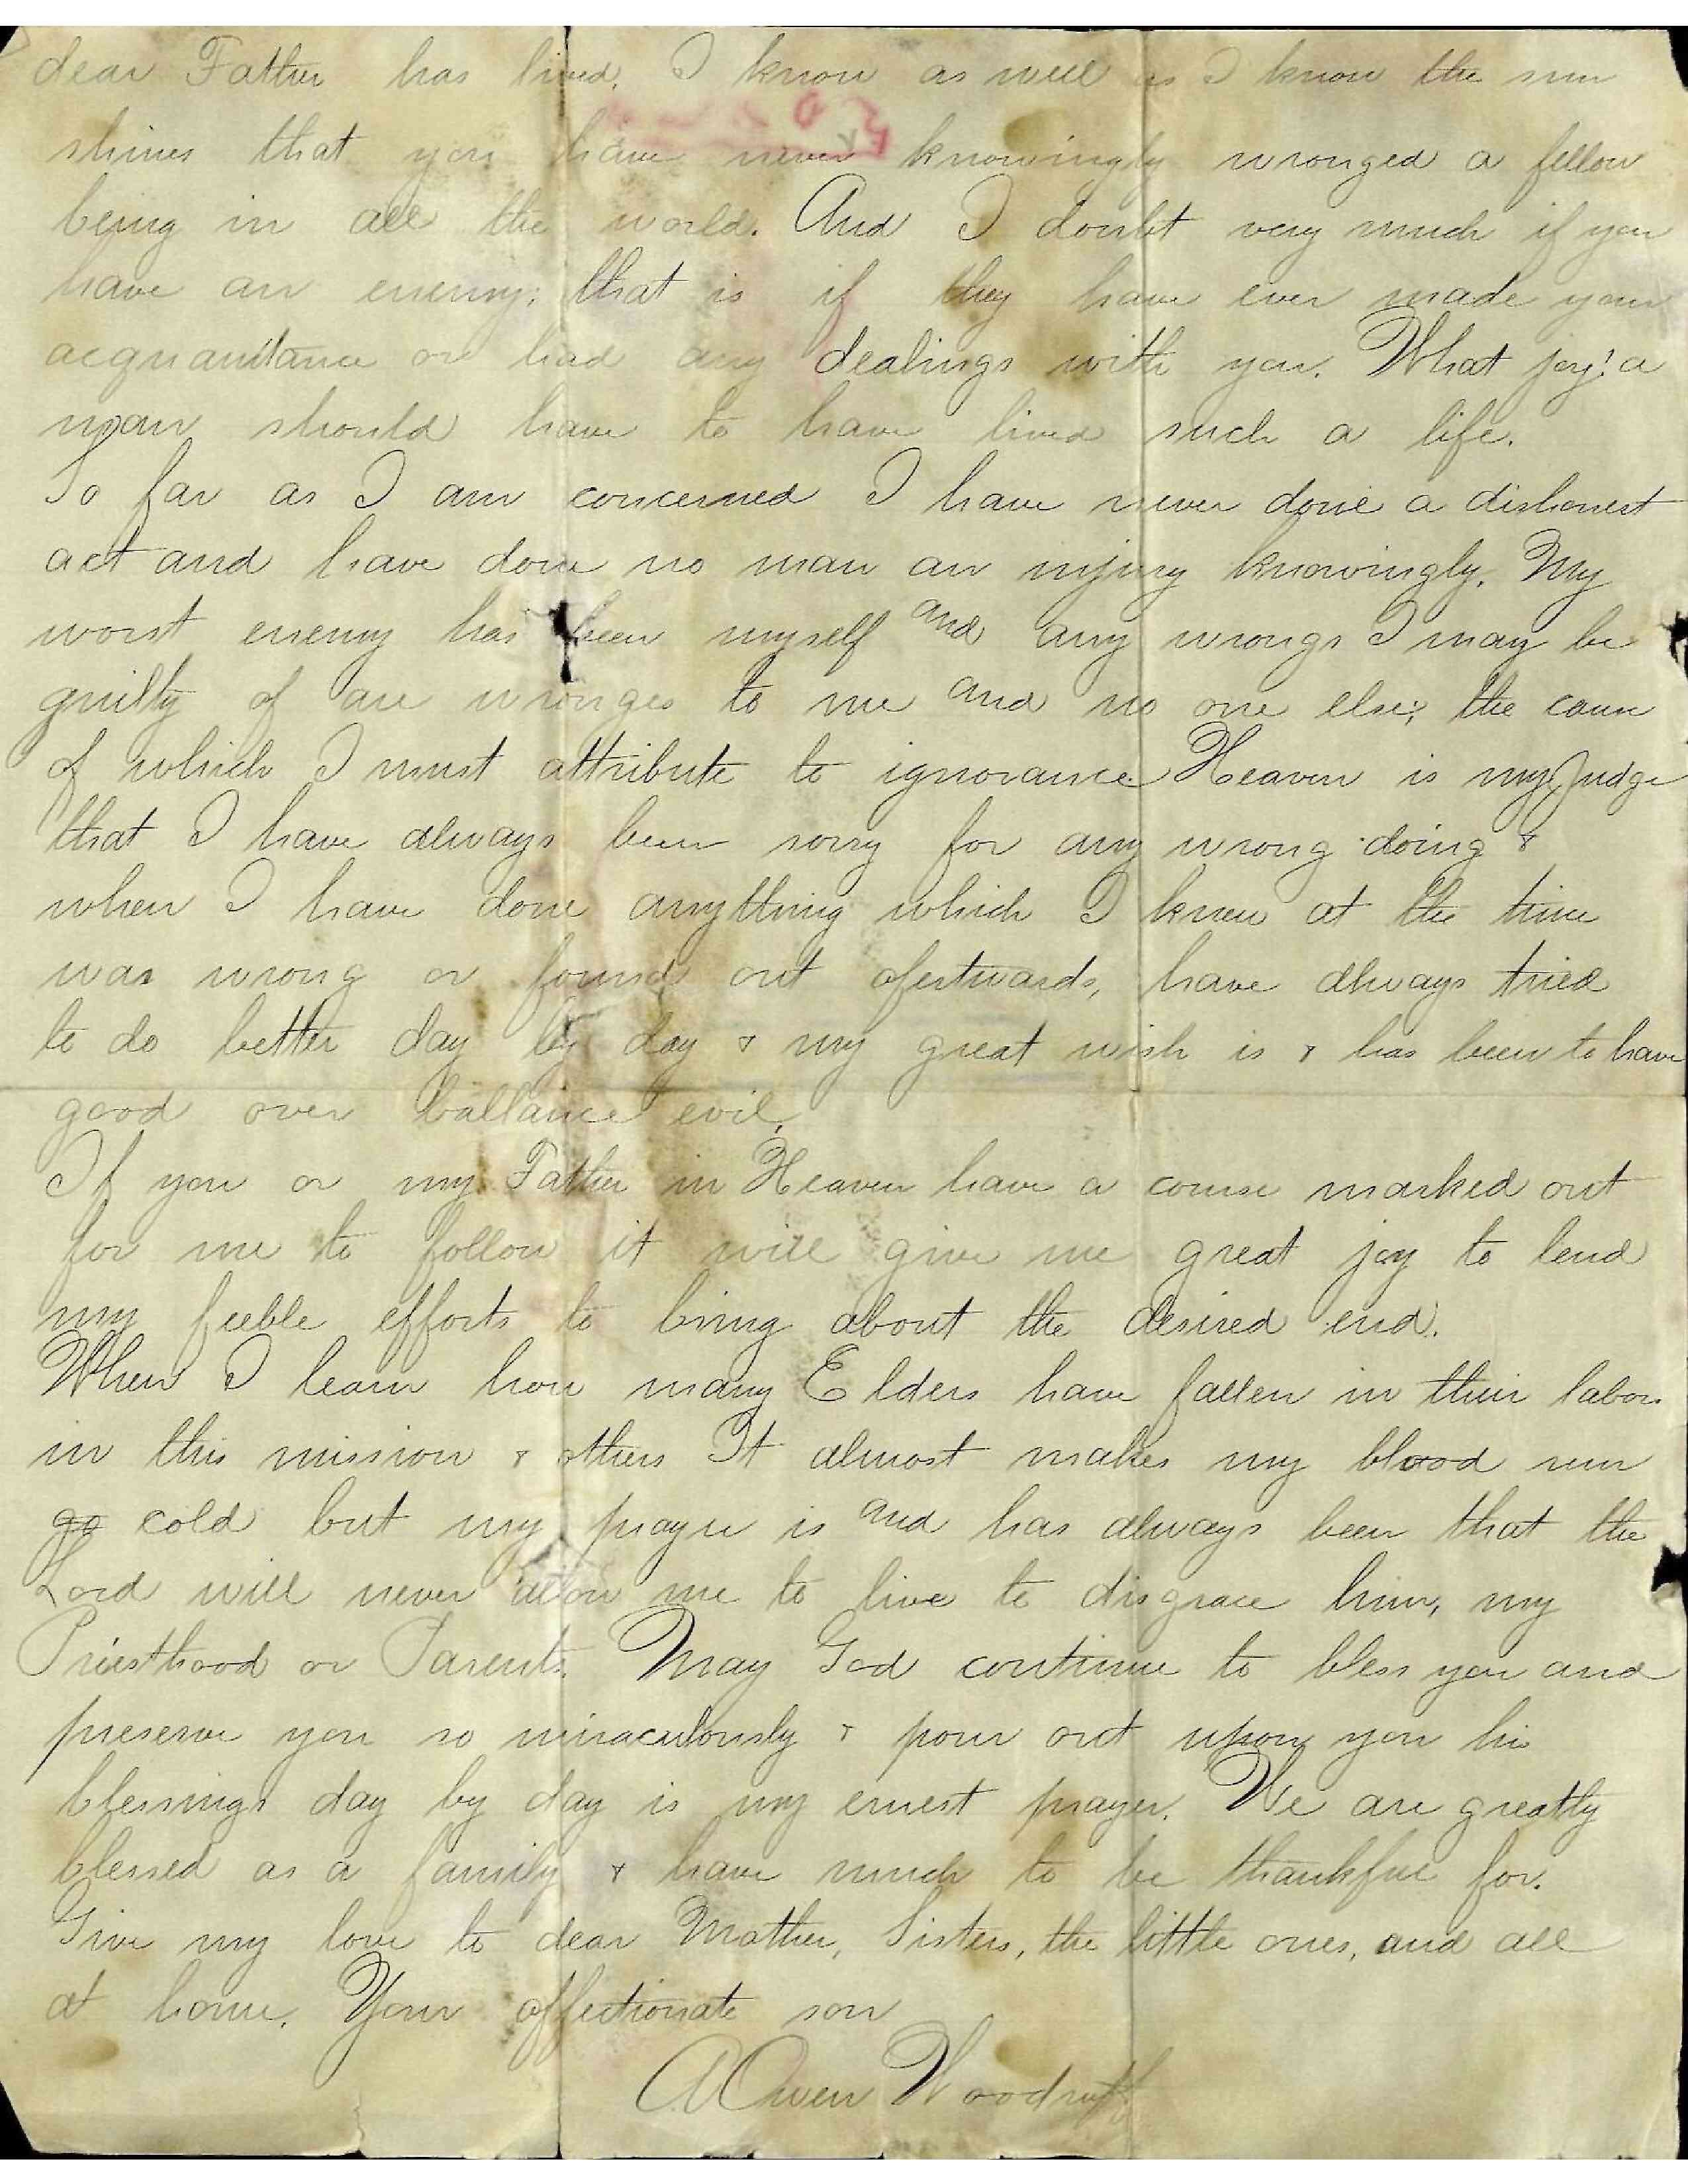 dear Father has lived. I know as well as I know the sun
shines that you have never knowingly wronged a fellow
being in all the world. And I doubt very much if you
have an enemy; that is if they have ever made your
acquaintance or had any dealings with you. What joy! a
man should have to have lived such a life.
So far as I am concerned I have never done a dishonest
act and have done no man an injury knowingly. My
worst enemy has been myself and any wrongs I may be
guilty of are wronges to me and no one else; the cause
of which I must attribute to ignorance. Heaven is my Judge
that I have always been sorry for any wrong doing &
when I have done anything which I knew at the time
was wrong or found out afertwards, have always tried
to do better day by day & my great wish is & has been to have
good over ballance evil.
If you or my Father in Heaven have a course marked out
for me to follow it will give me great joy to lend
my feeble efforts to bring about the desired end.
When I learn how many Elders have fallen in their labors
in this mission & others It almost makes my blood run
go cold but my prayer is and has always been that the
Lord will never allow me to live to disgrace him, my
Priesthood or Parents. May God continue to bless you and
preserve you so miraculously & pour out upon you his
blessings day by day is my ernest prayer. We are greatly
blessed as a family & have much to be thankful for.
Give my love to dear Mother, Sisters, the little ones, and all
at home. Your affectionate son
A Owen Woodruff